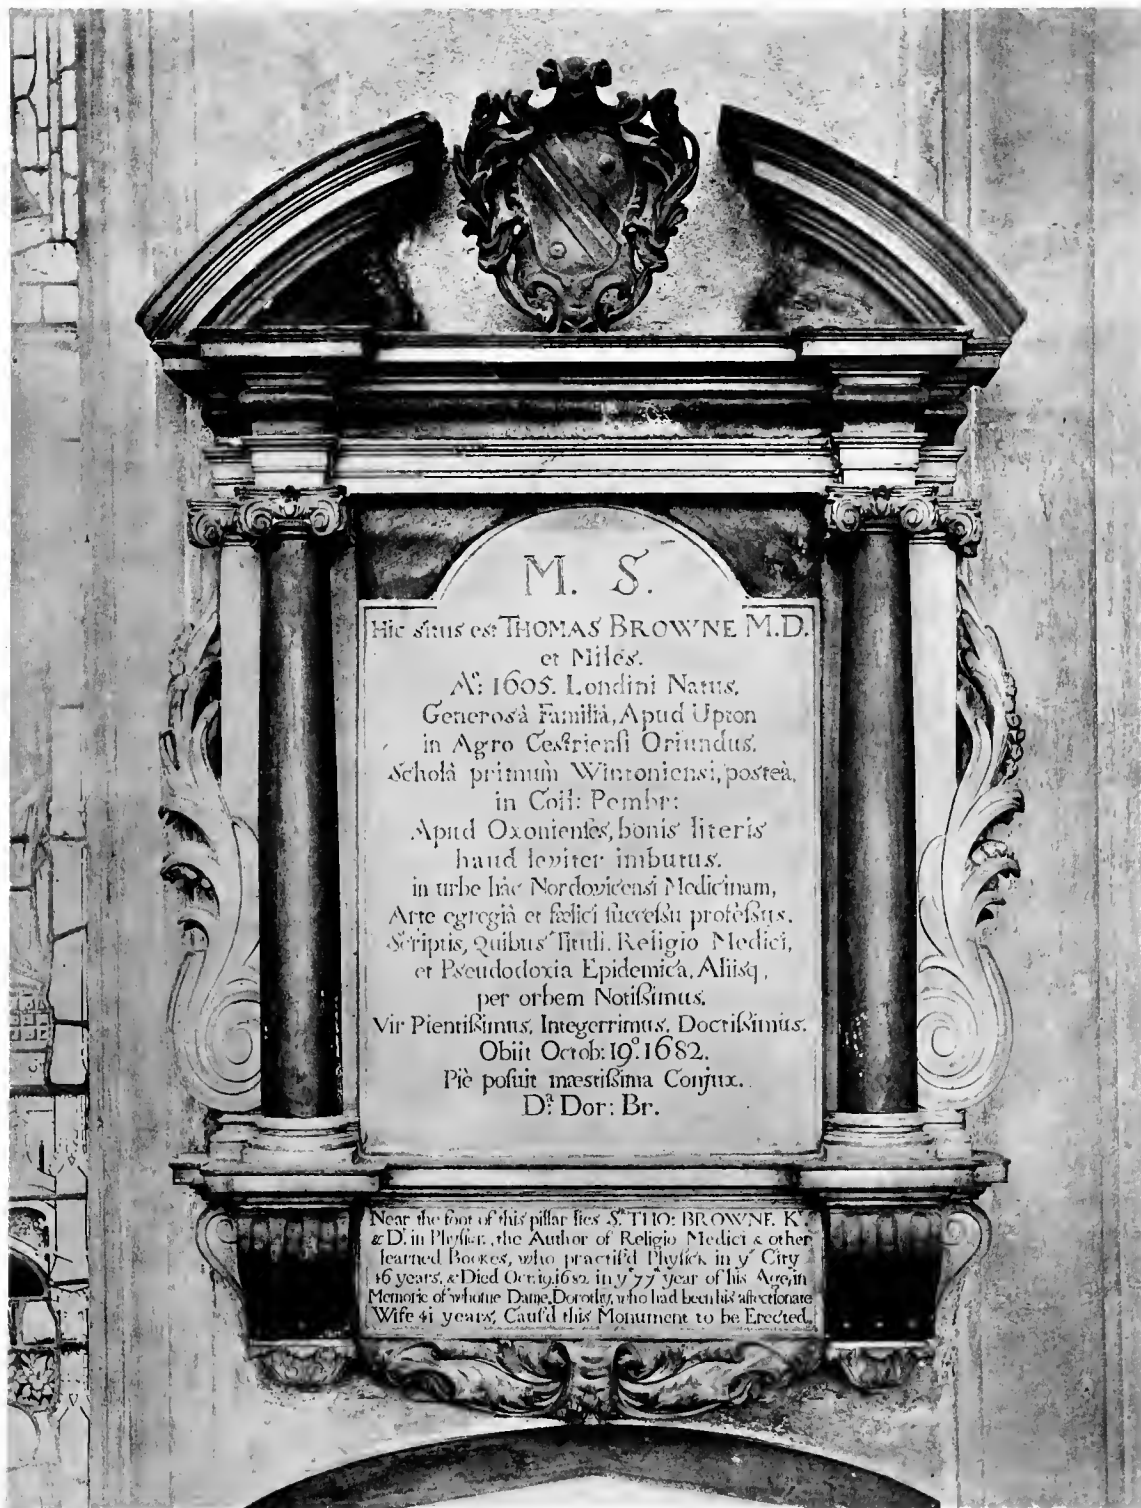 M. S.
Hic situs est THOMAS BROWNE M.D.
et Miles.
Aº: 1605. Londini Natus,
Generosâ Familiâ, Apud Upton
in Agro Cestriensi Oriundus.
Scholâ primùm Wintoniensi, posteà,
in Coll: Pembr:
Apud Oxonienses, bonis literis
haud leviter imbutus.
in urbe hâc Nordovicensi Medicinam,
Arte egregiâ et fœlici successu professus.
Scriptis, quibus Tituli. Religio Medici,
et Pseudodoxia Epidemica, Aliisq,
per orbem Notißimus.
Vir Pientißimus, Integerrimus, Doctißimus.
Obiit Octob: 19º. 1682.
Piè posuit mæstißima Conjux.
Dª: Dor: Br.
Near the foot of this pillar lies Sʳ. THO: BROWNE. Kᵗ.
& Dʳ. in Physick, the Author of Religio Medici & other
learned Bookes, who practis'd Physick in yᵉ City
46 years, & Died Oct: 19. 1682. in yᵉ 77 year of his Age, in
Memorie of whome Dame Dorothy, who had been his affectionate
Wife 41 years, Caus'd this Monument to be Erected.